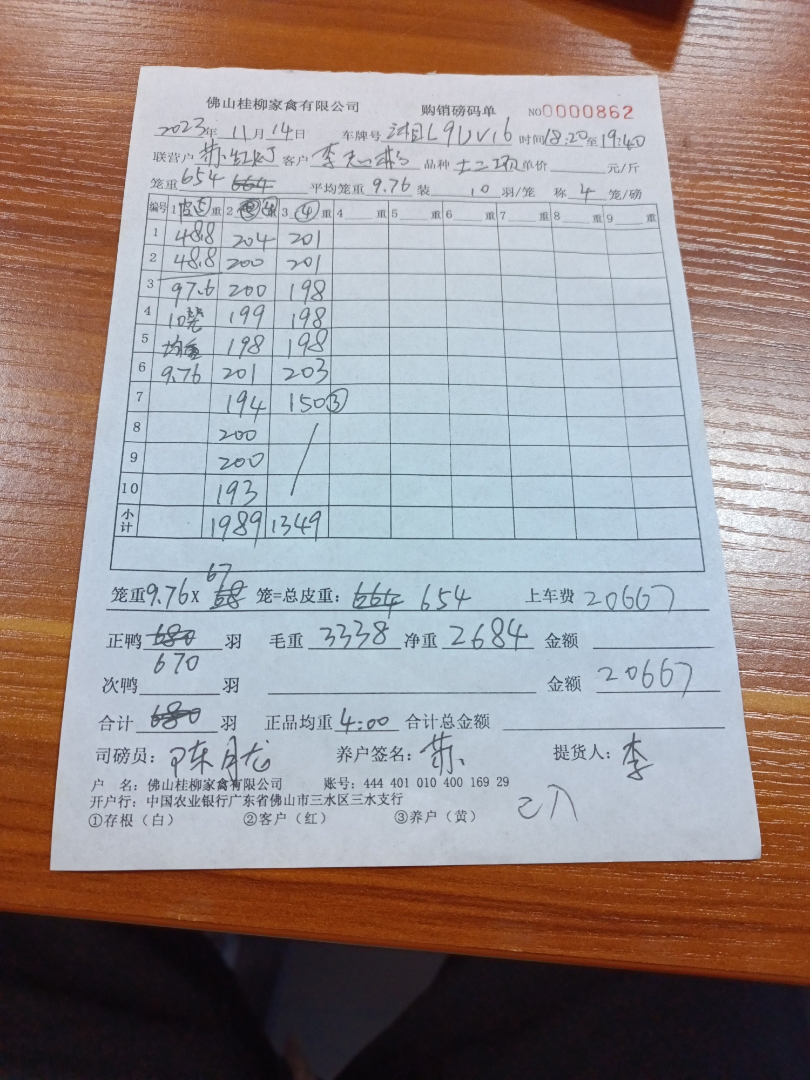 佛山桂柳家禽有限公司 购销磅码单 NO0000862
2023年 11月 14日 车牌号 L9UV16 时间18:20至19:40
联营户 苏 客户 李志 品种 土二 单价 元/斤
笼重 654 平均笼重 9.76 装 10 羽/笼 称 4 笼/磅
编号 1 皮 重 2 重 3 ④ 重 4 重 5 重 6 重 7 重 8 重 9 重
1 48.8 204 201
2 48.8 200 201
3 97.6 200 198
4 10笼 199 198
5 均重 198 198
6 9.76 201 203
7 194 150③
8 200
9 200
10 193
小计 1989 1349
67
笼重9.76x 68 笼=总皮重: 664 654 上车费 20667
正鸭 680 羽 毛重 3338 净重 2684 金额
670
次鸭 羽 金额 20667
合计 680 羽 正品均重 4:00 合计总金额
司磅员: 陈月龙 养户签名: 苏 提货人: 李
户 名: 佛山桂柳家禽有限公司 账号: 444 401 010 400 169 29
开户行: 中国农业银行广东省佛山市三水区三水支行
①存根（白） ②客户（红） ③养户（黄）